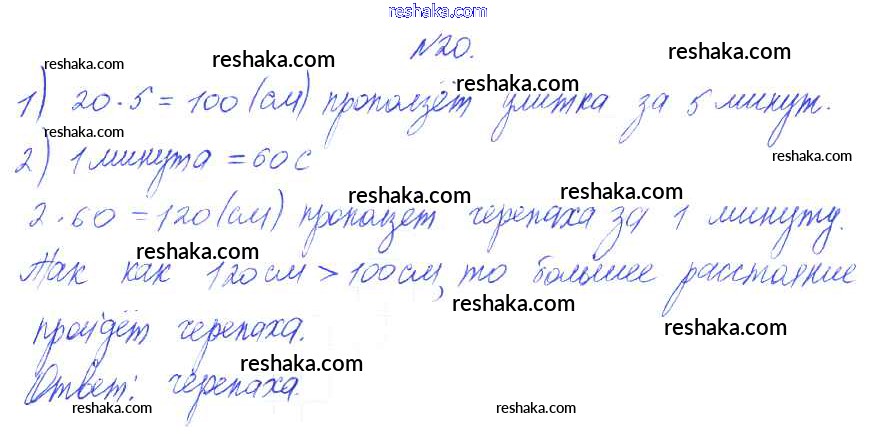 reshaka.com
№20.
reshaka.com reshaka.com reshaka.com
1) 20·5=100(см) проползёт улитка за 5 минут.
reshaka.com
reshaka.com
2) 1 минута =60с
reshaka.com
reshaka.com reshaka.com
2·60=120(см) проползет черепаха за 1 минуту.
reshaka.com
Так как 120см>100см, то большее расстояние
reshaka.com
пройдёт черепаха.
reshaka.com
reshaka.com
Ответ: черепаха.
reshaka.com reshaka.com reshaka.com